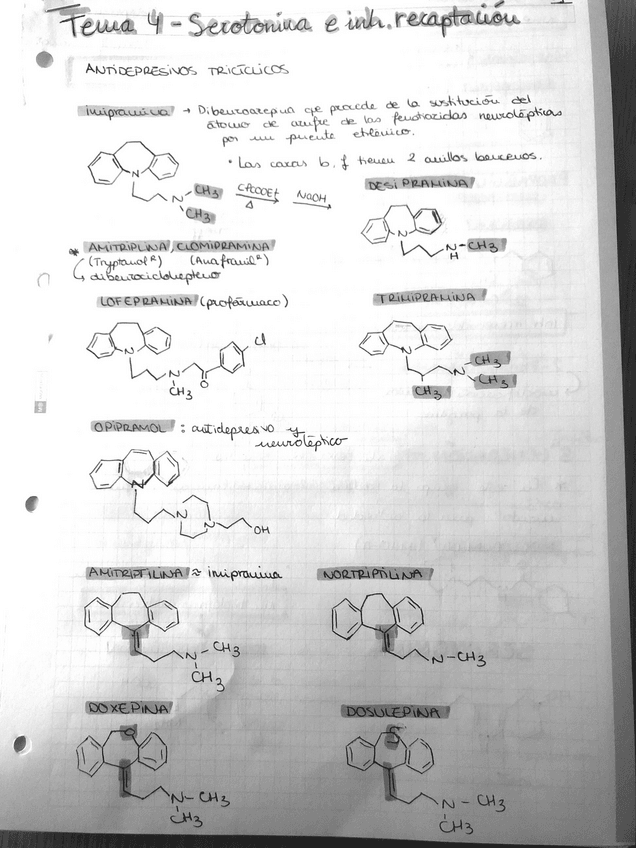 Tema 4 - Serotonina e inh. recaptación
ANTIDEPRESIVOS TRICÍCLICOS
imipramina → Dibenzoazepina qe procede de la sustitución del
átomo de azufre de las fenotiazidas neurolépticas
por un puente etilénico.
• Las caras b, f tienen 2 anillos bencenos.
N
N
CH3
CH3
ClCOOEt
Δ
NaOH
DESIPRAMINA
N
N-CH3
H
* AMITRIPLINA, CLOMIPRAMINA
(Tryptanol R) (Anafranil R)
↳ dibenzociclohepteno
LOFEPRAMINA (profármaco)
N
N
CH3
O
Cl
TRIMIPRAMINA
N
N
CH3
CH3
CH3
OPIPRAMOL : antidepresivo y
neuroléptico
N
N
N
OH
AMITRIPTILINA ≈ imipramina
N-CH3
CH3
NORTRIPTILINA
N-CH3
DOXEPINA
O
N-CH3
CH3
DOSULEPINA
S
N-CH3
CH3